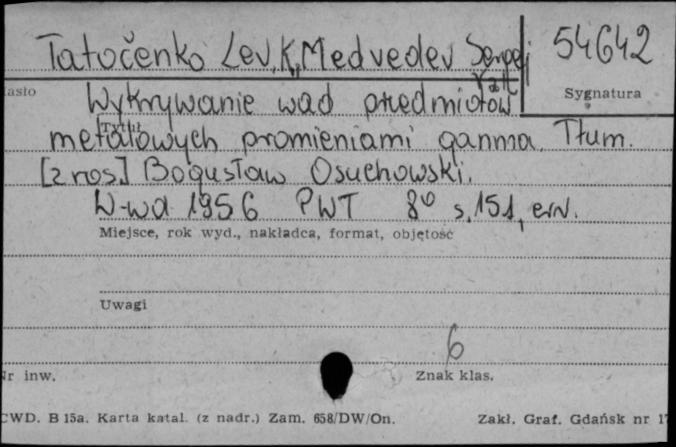 Tatočenko Lev, K, Medvedev Sergej
54642
asło
Sygnatura
Wykrywanie wad przedmiotów
Tytuł
metalowych promieniami gamma. Tłum.
[z ros] Bogusław Osuchowski.
W-wa 1956 PWT 8° s. 151,
Miejsce, rok wyd., nakładca, format, objętość
Uwagi
6
Nr inw.
Znak klas.
CWD. B 15a. Karta katal. (z nadr.) Zam. 658/DW/On.
Zakł. Graf. Gdańsk nr 1